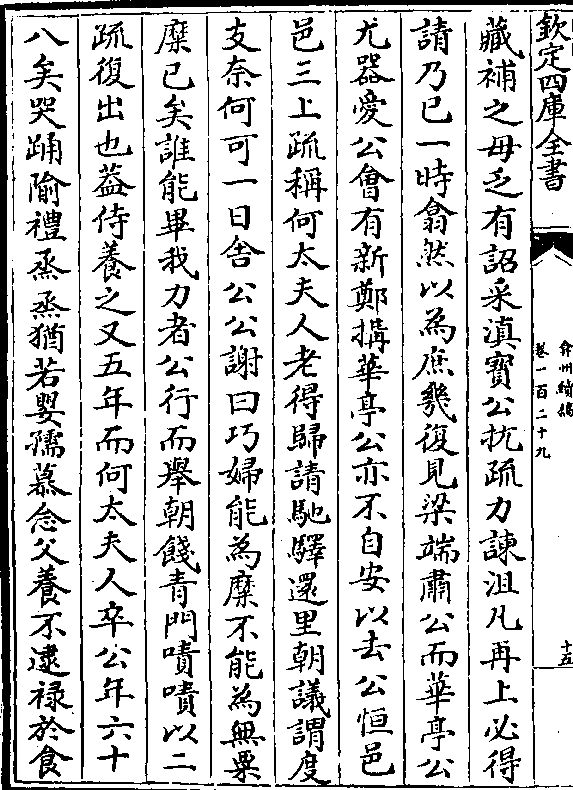 欽定四庫全書
弇州續稿
卷一百二十九
十五
藏補之毋乏有詔采滇寶公抗疏力諌沮凡再上必得
請乃已一時翕然以為庶幾復見梁端肅公而華亭公
尤器愛公會有新鄭搆華亭公亦不自安以去公恒邑
邑三上疏稱何太夫人老得歸請馳驛還里朝議謂度
支奈何可一日舍公公謝曰巧婦能為糜不能為無粟
糜已矣誰能畢我力者公行而舉朝餞青門嘖嘖以二
疏復出也葢侍養之又五年而何太夫人卒公年六十
八矣哭踊隃禮烝烝猶若嬰孺慕念父養不逮祿於食